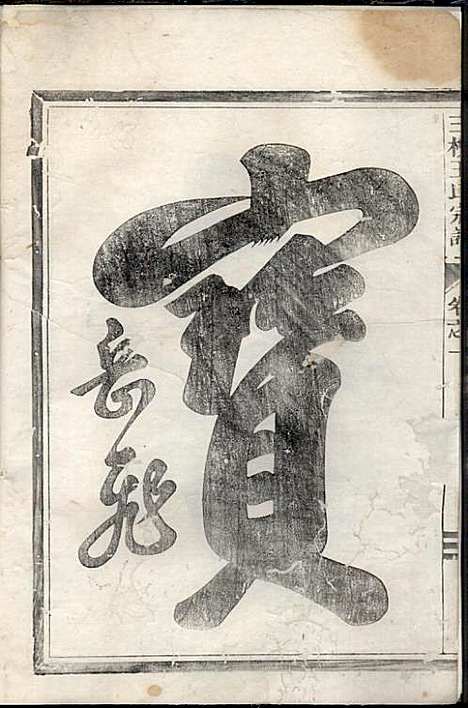 三槐王氏宗譜
卷之一
寶
岳飛